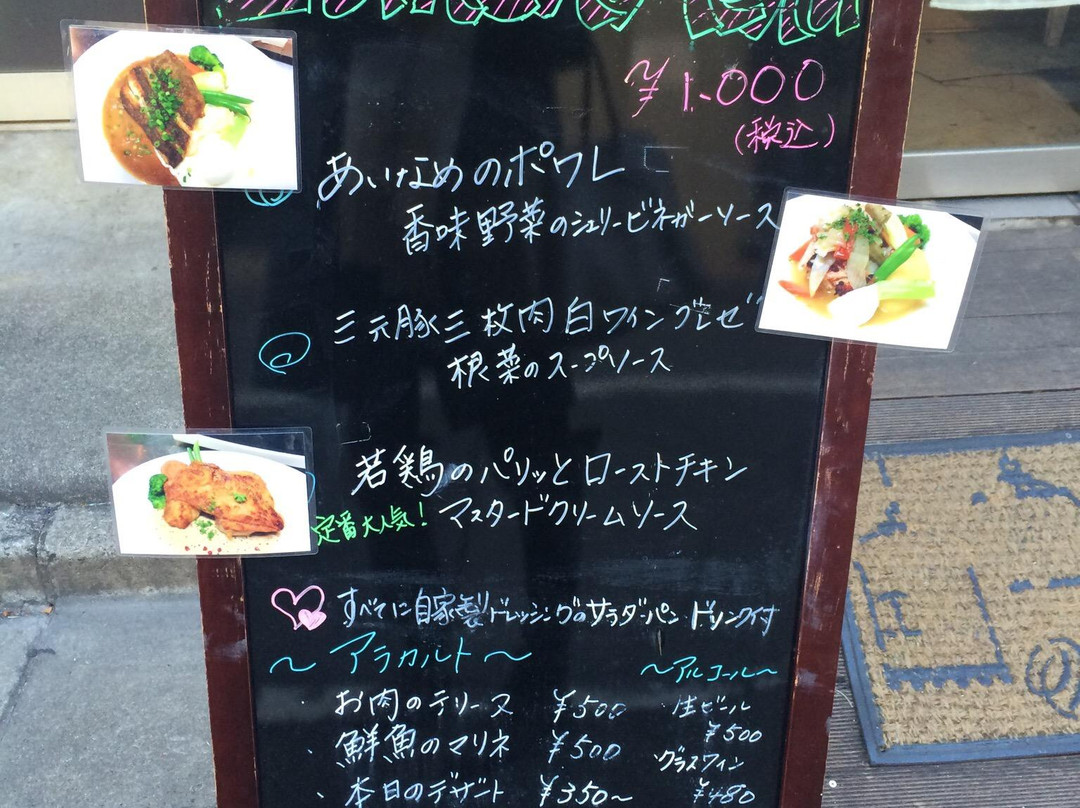 ¥1.000
(税込)
あいなめのポワレ
香味野菜のシェリービネガーソース
三元豚三枚肉白ワインブレゼ
根菜のスープソース
若鶏のパリッとローストチキン
定番大人気! マスタードクリームソース
すべてに自家製ドレッシングのサラダ・パン・ドリンク付
～アラカルト～
・お肉のテリーヌ ¥500
・鮮魚のマリネ ¥500
・本日のデザート ¥350～
～アルコール～
生ビール
¥500
グラスワイン
¥480